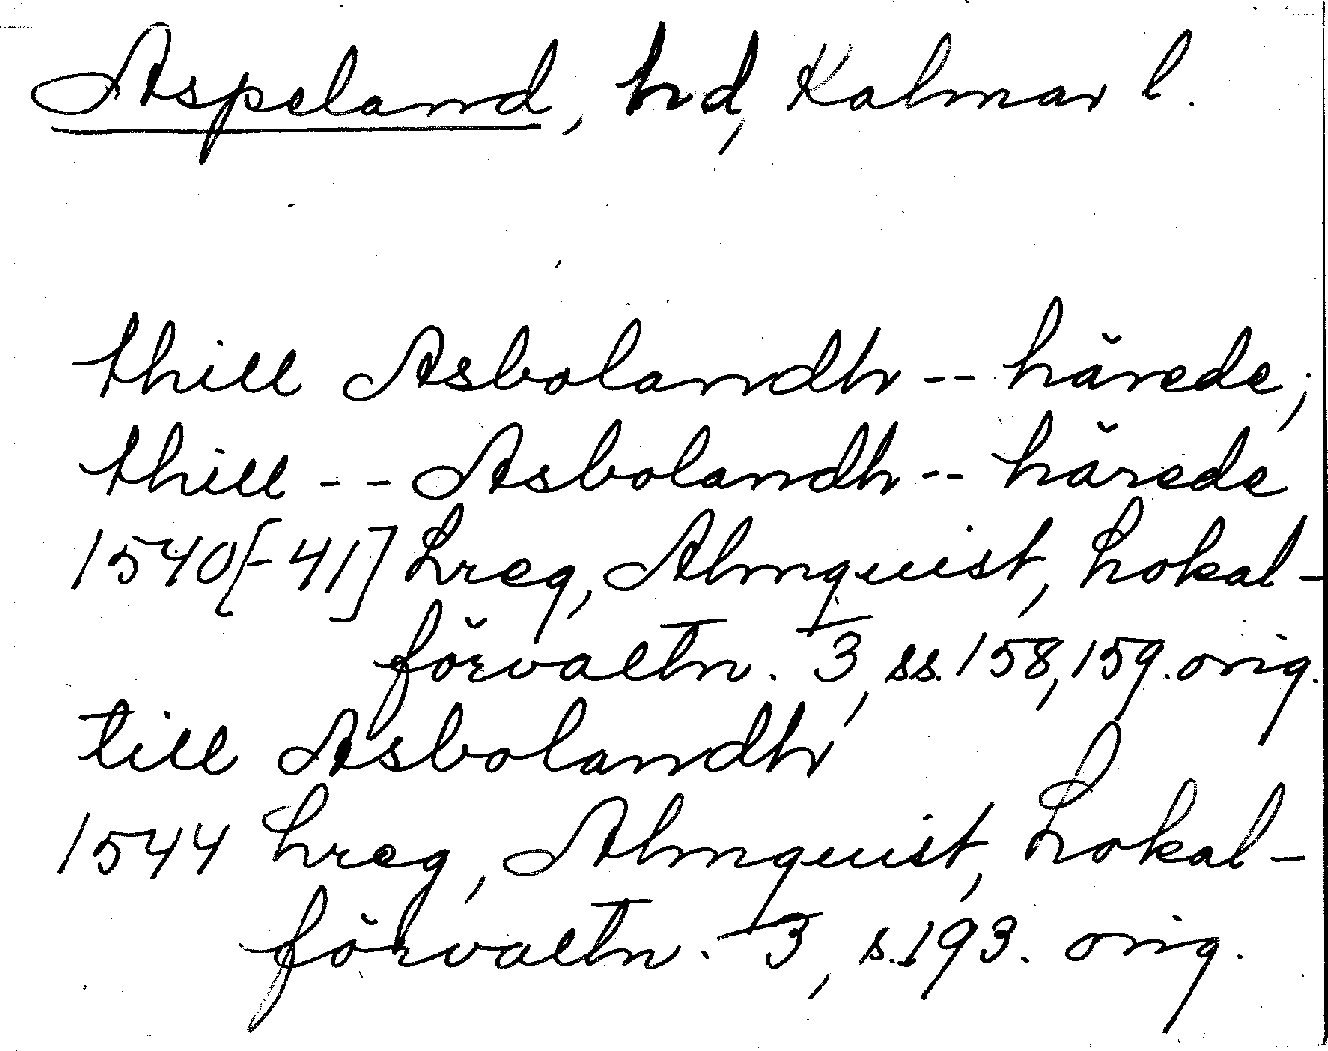 Aspeland, hd, Kalmar l.
thill Asbolandh -- härede;
thill -- Asbolandh -- härede
1540[-41] Lreg, Almquist, Lokal-
förvaltn. 3, ss. 158, 159. orig.
till Asbolandh
1544 Lreg, Almquist, Lokal-
förvaltn. 3, s. 193. orig.